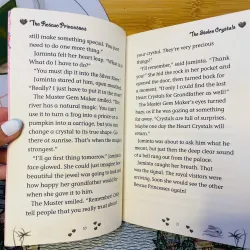 The Rescue Princesses
still make something special. You just
need to do one more thing."
Jaminta felt her heart leap. "What is it?
What do I have to do?"
"You must dip it into the Silver River."
Jaminta stared at him, open mouthed.
"Really? I just have to put it in the river?"
The Master Gem Maker smiled. "The
river has a natural magic. You can't
use it to turn a frog into a prince or a
pumpkin into a carriage, but you can
change a crystal to its true shape. Go
there at sunrise. That's when the magic is
strongest."
"I'll go first thing tomorrow," Jaminta's
face glowed. She could just imagine how
beautiful the jewel was going to look and
how happy her grandfather would be
when she gave it to him.
The Master smiled. "Remember! Only
tell people that you really trust about
The Stolen Crystals
your crystal. They're very precious
things!"
"I'll remember," said Jaminta. "Thank
you." She hid the rock in her pocket and
opened the door, then turned back for
a moment. "I only wish I could find the
Heart Crystals for Grandfather as well!"
The Master Gem Maker's eyes turned
hazy, as if he was gazing at something
far away. "Crystals are full of surprises.
Maybe one day the Heart Crystals will
return."
Jaminta was about to ask him what he
meant, but just then the deep clear sound
of a bell rang out from the palace.
Jaminta caught her breath. That
was the signal. The royal visitors were
arriving. Soon she would see the other
Rescue Princesses again!